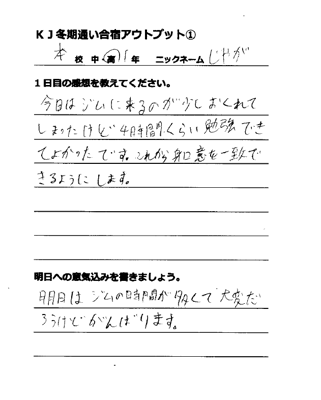 KJ冬期通い合宿アウトプット①
本 校 中・高 1 年 ニックネーム じゃが
1日目の感想を教えてください。
今日はジムに来るのが少しおくれて
しまったけど4時間くらい勉強でき
てよかったです。これから身口意を一致で
きるようにします。
明日への意気込みを書きましょう。
明日はジムの時間が多くて大変だ
ろうけどがんばります。